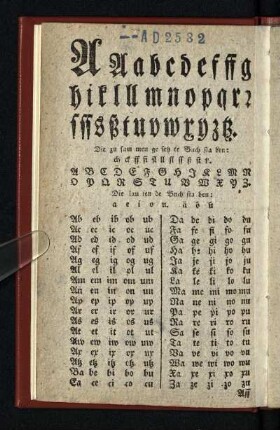 AD2532
A A a b c d e f ff g
h i k l ll m n o p q r ꝛ
ſ ſſ s ß t u v w x y z tz.
Die zu ſam men ge ſetz te Buch ſta ben:
A B C D E F G H I K L M N
O P Q R S T U V W X Y Z.
Die lau ten de Buch ſta ben:
a e i o u. ä ö ü
Ab eb ib ob ub
Ac ec ic oc uc
Ad ed id od ud
Af ef if of uf
Ag eg ig og ug
Al el il ol ul
Am em im om um
An en in on un
Ap ep ip op up
Ar er ir or ur
As es is os us
At et it ot ut
Aw ew iw ow uw
Ax ex ix ox yx
Atz etz itz otz utz
Ba be bi bo bu
Ca ce ci co cu
Da de di do du
Fa fe fi fo fu
Ga ge gi go gu
Ha he hi ho hu
Ja je ji jo ju
Ka ke ki ko ku
La le li lo lu
Ma me mi mo mu
Na ne ni no nu
Pa pe pi po pu
Ra re ri ro ru
Sa ſe ſi ſo ſu
Ta te ti to tu
Va ve vi vo vu
Wa we wi wo wu
Xa xe xi xo xu
Za ze zi zo zu
Aff